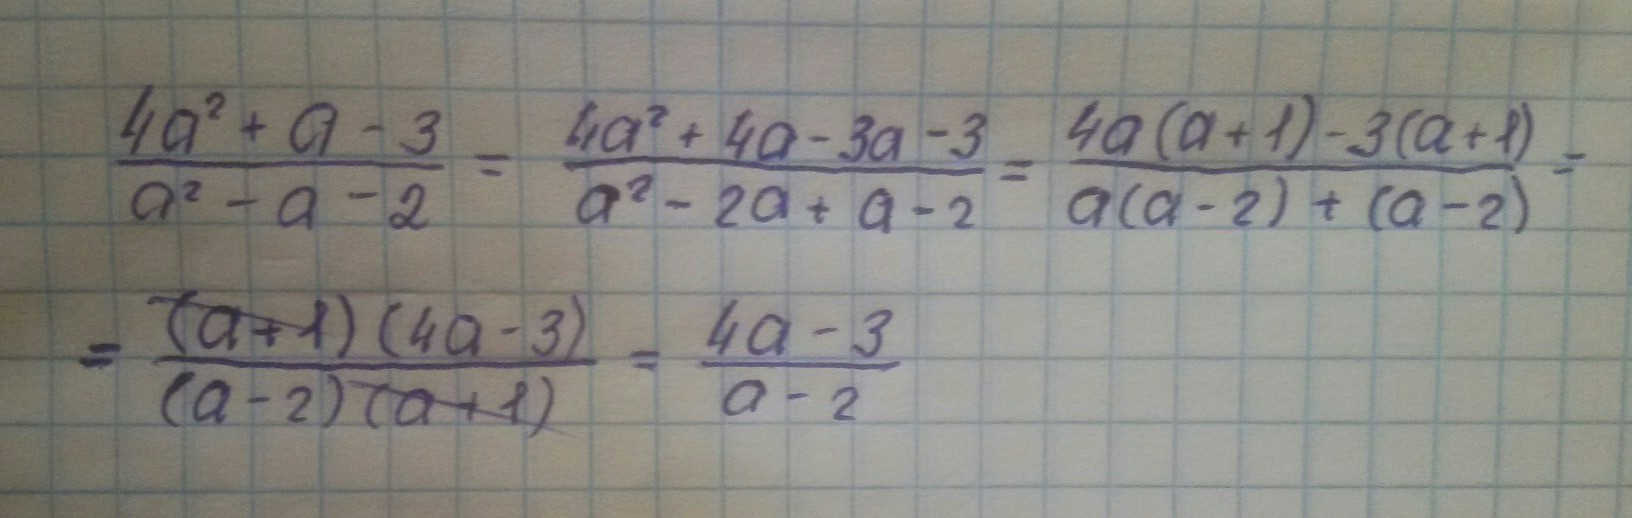 (4a² + a - 3)/(a² - a - 2) = (4a² + 4a - 3a - 3)/(a² - 2a + a - 2) = (4a(a+1) - 3(a+1))/(a(a-2) + (a-2)) =
= ((a+1)(4a-3))/((a-2)(a+1)) = (4a - 3)/(a - 2)